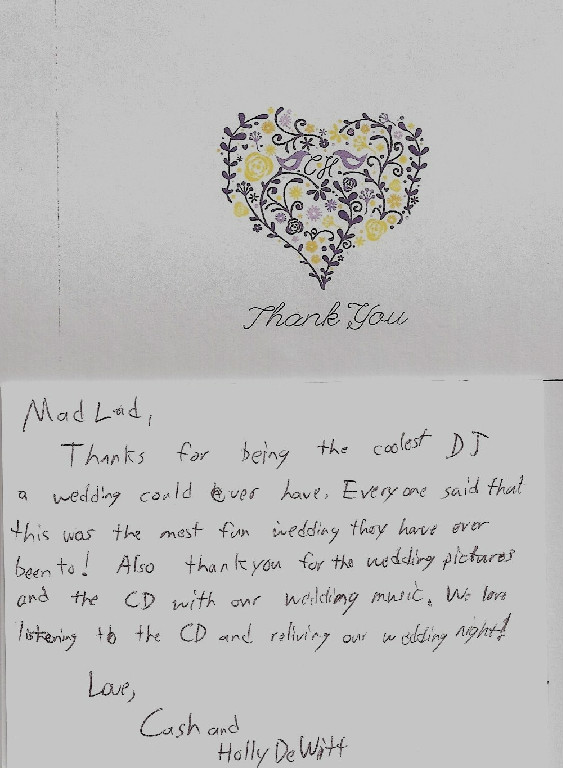 CH
Thank You
Mad Lad,
Thanks for being the coolest DJ
a wedding could ever have. Everyone said that
this was the most fun wedding they have ever
been to! Also thank you for the wedding pictures
and the CD with our wedding music. We love
listening to the CD and reliving our wedding night!
Love,
Cash and
Holly DeWitt